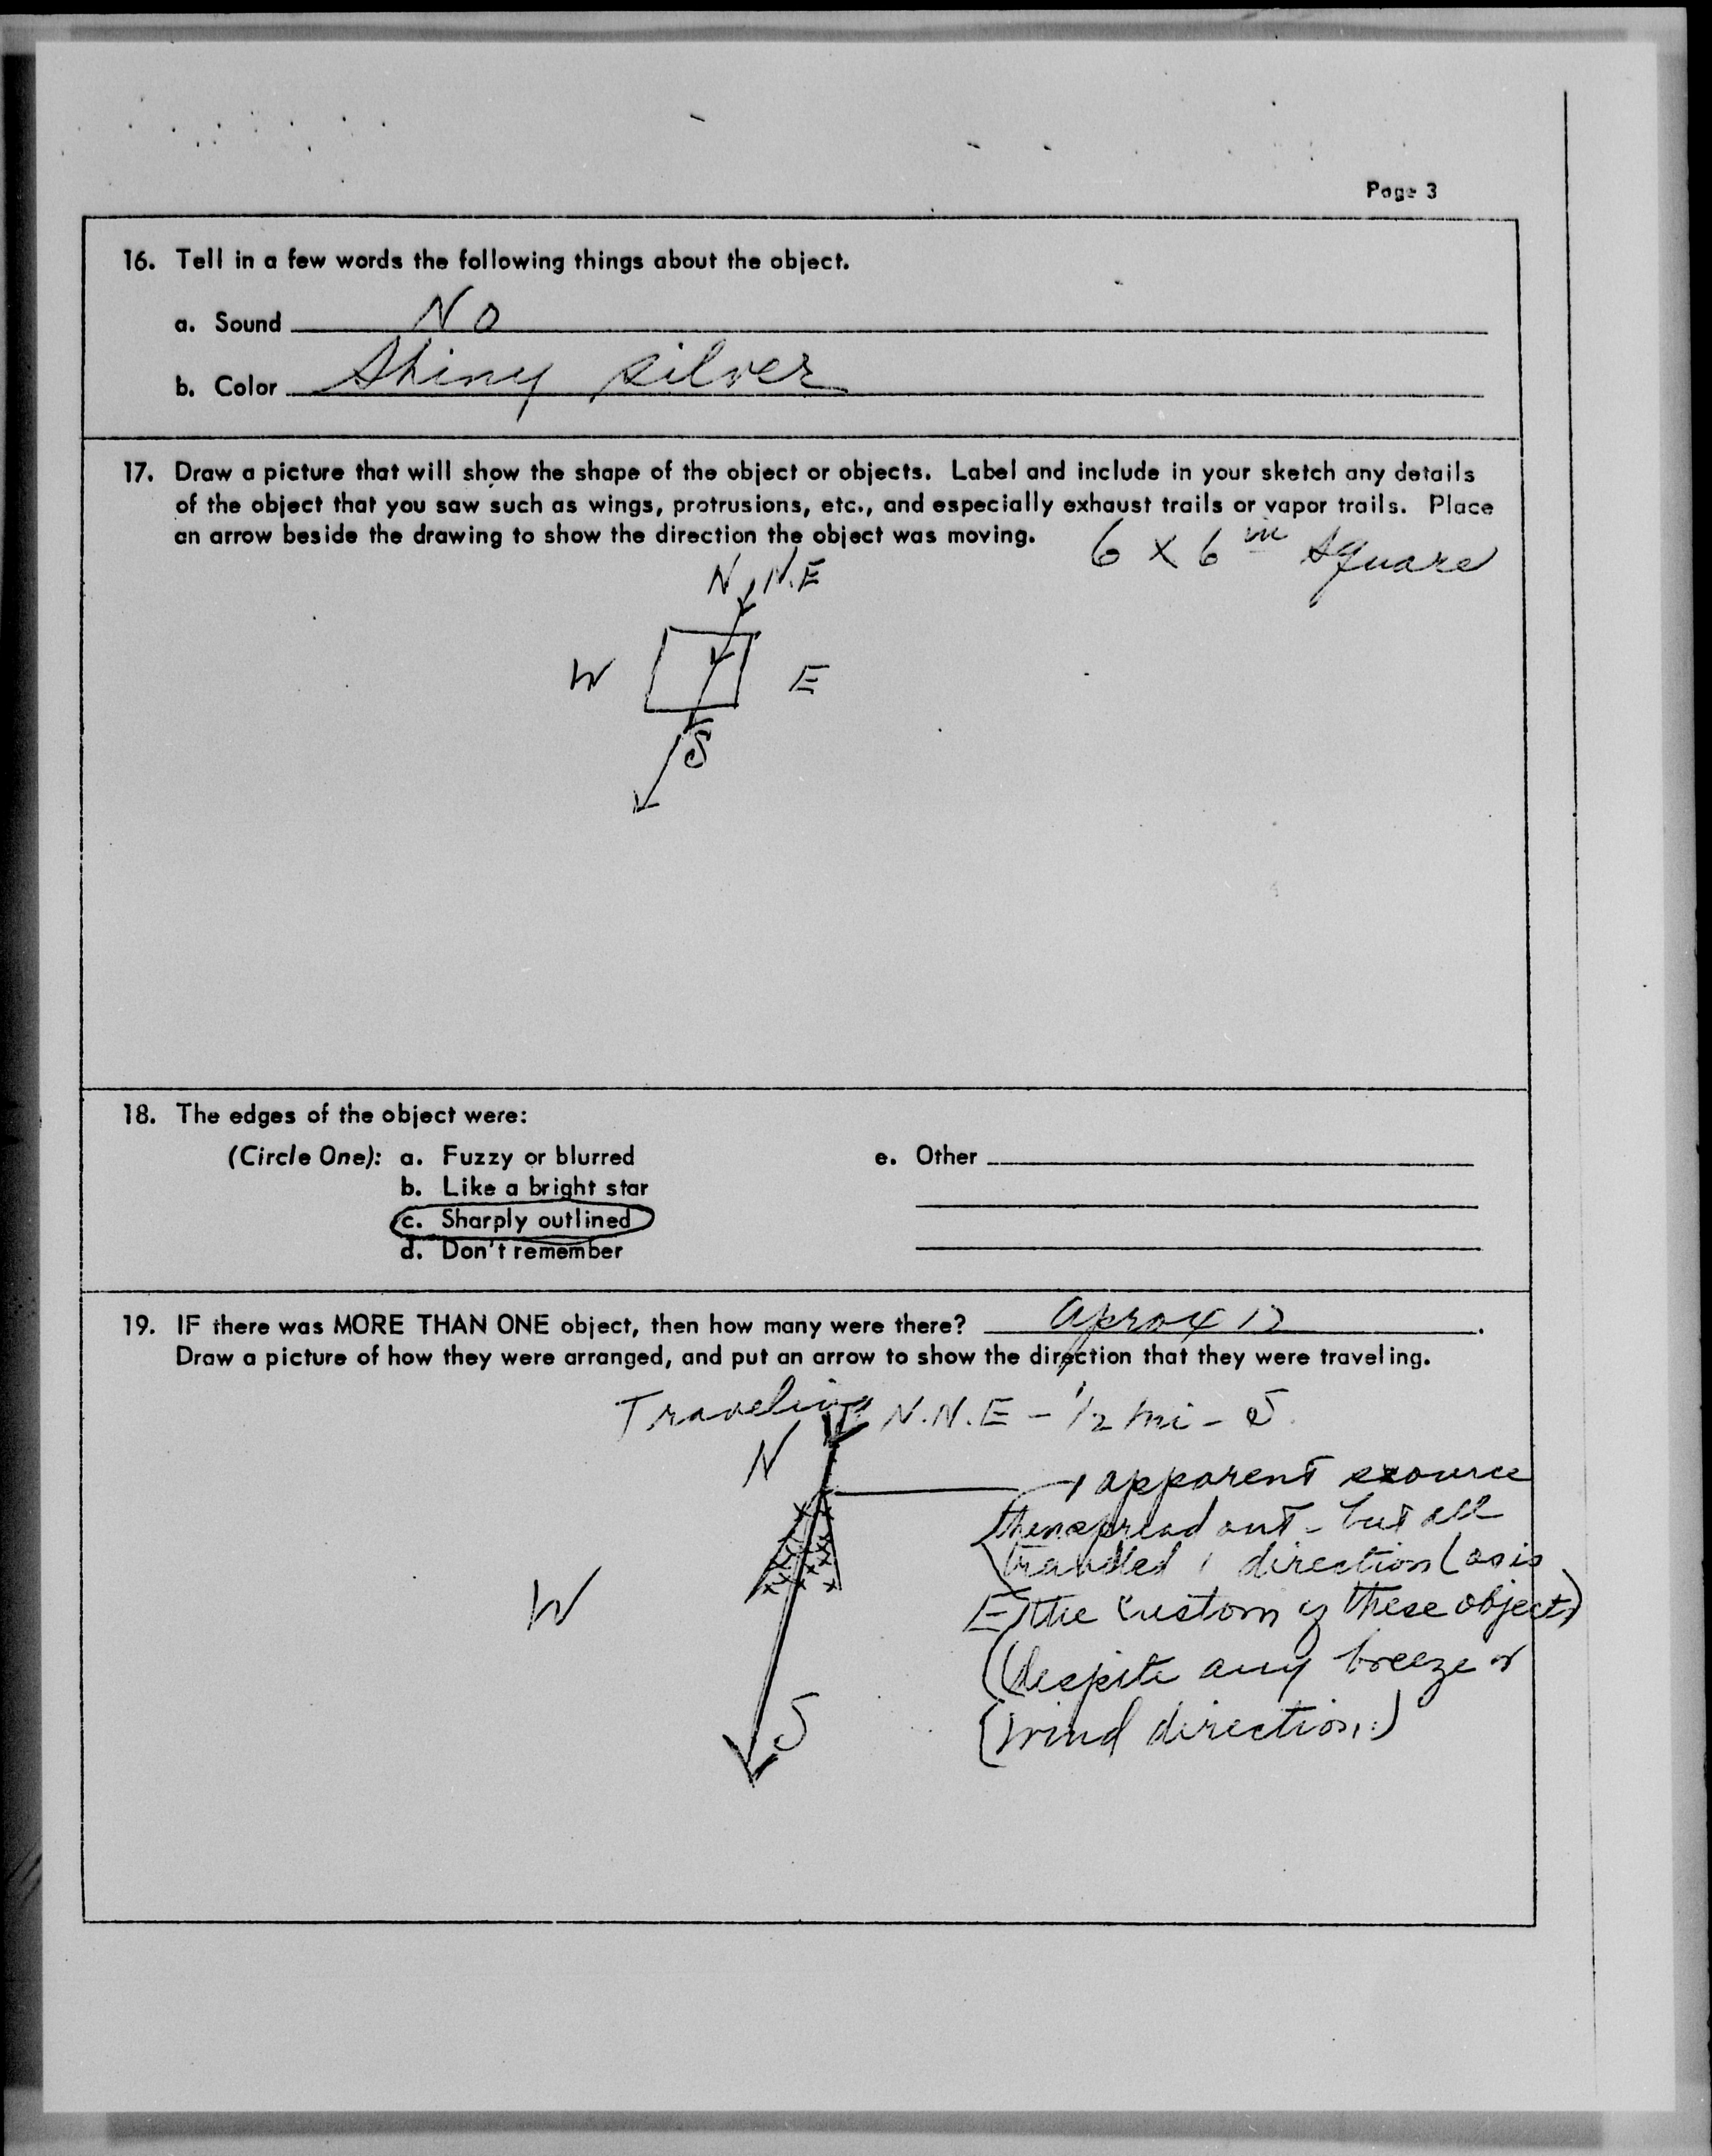 Page 3
16. Tell in a few words the following things about the object.
a. Sound No
b. Color Shiny silver
17. Draw a picture that will show the shape of the object or objects. Label and include in your sketch any details
of the object that you saw such as wings, protrusions, etc., and especially exhaust trails or vapor trails. Place
an arrow beside the drawing to show the direction the object was moving.
6 x 6 in square
N N.E
W E
S
18. The edges of the object were:
(Circle One): a. Fuzzy or blurred e. Other
b. Like a bright star
c. Sharply outlined
d. Don't remember
19. IF there was MORE THAN ONE object, then how many were there? Aprox 12.
Draw a picture of how they were arranged, and put an arrow to show the direction that they were traveling.
Traveling N.N.E - 1/2 mi - S.
N
apparent source
then spread out - but all
travelled 1 direction (as is
W E the custom of these objects)
(despite any breeze or
S (wind direction.)